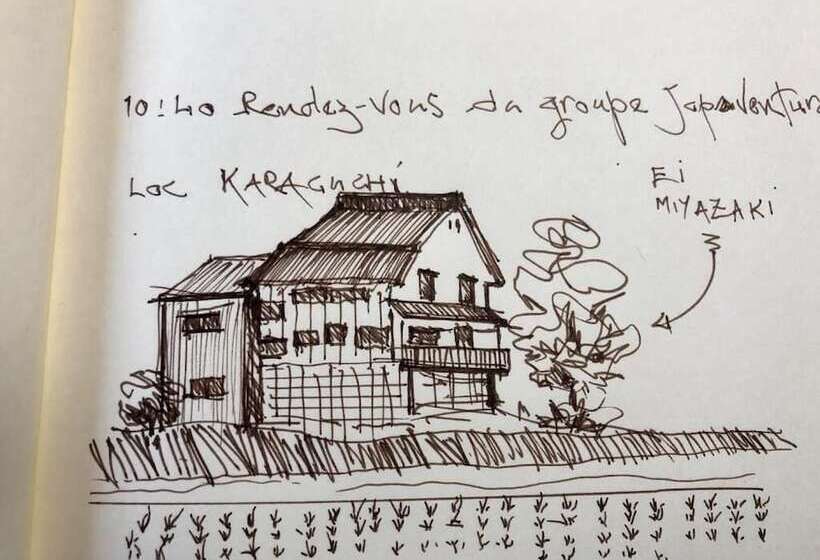 10! Lo Rendez-Vous du groupe Japaventur
Loc KARAGUCHI
Ei
MIYAZAKI